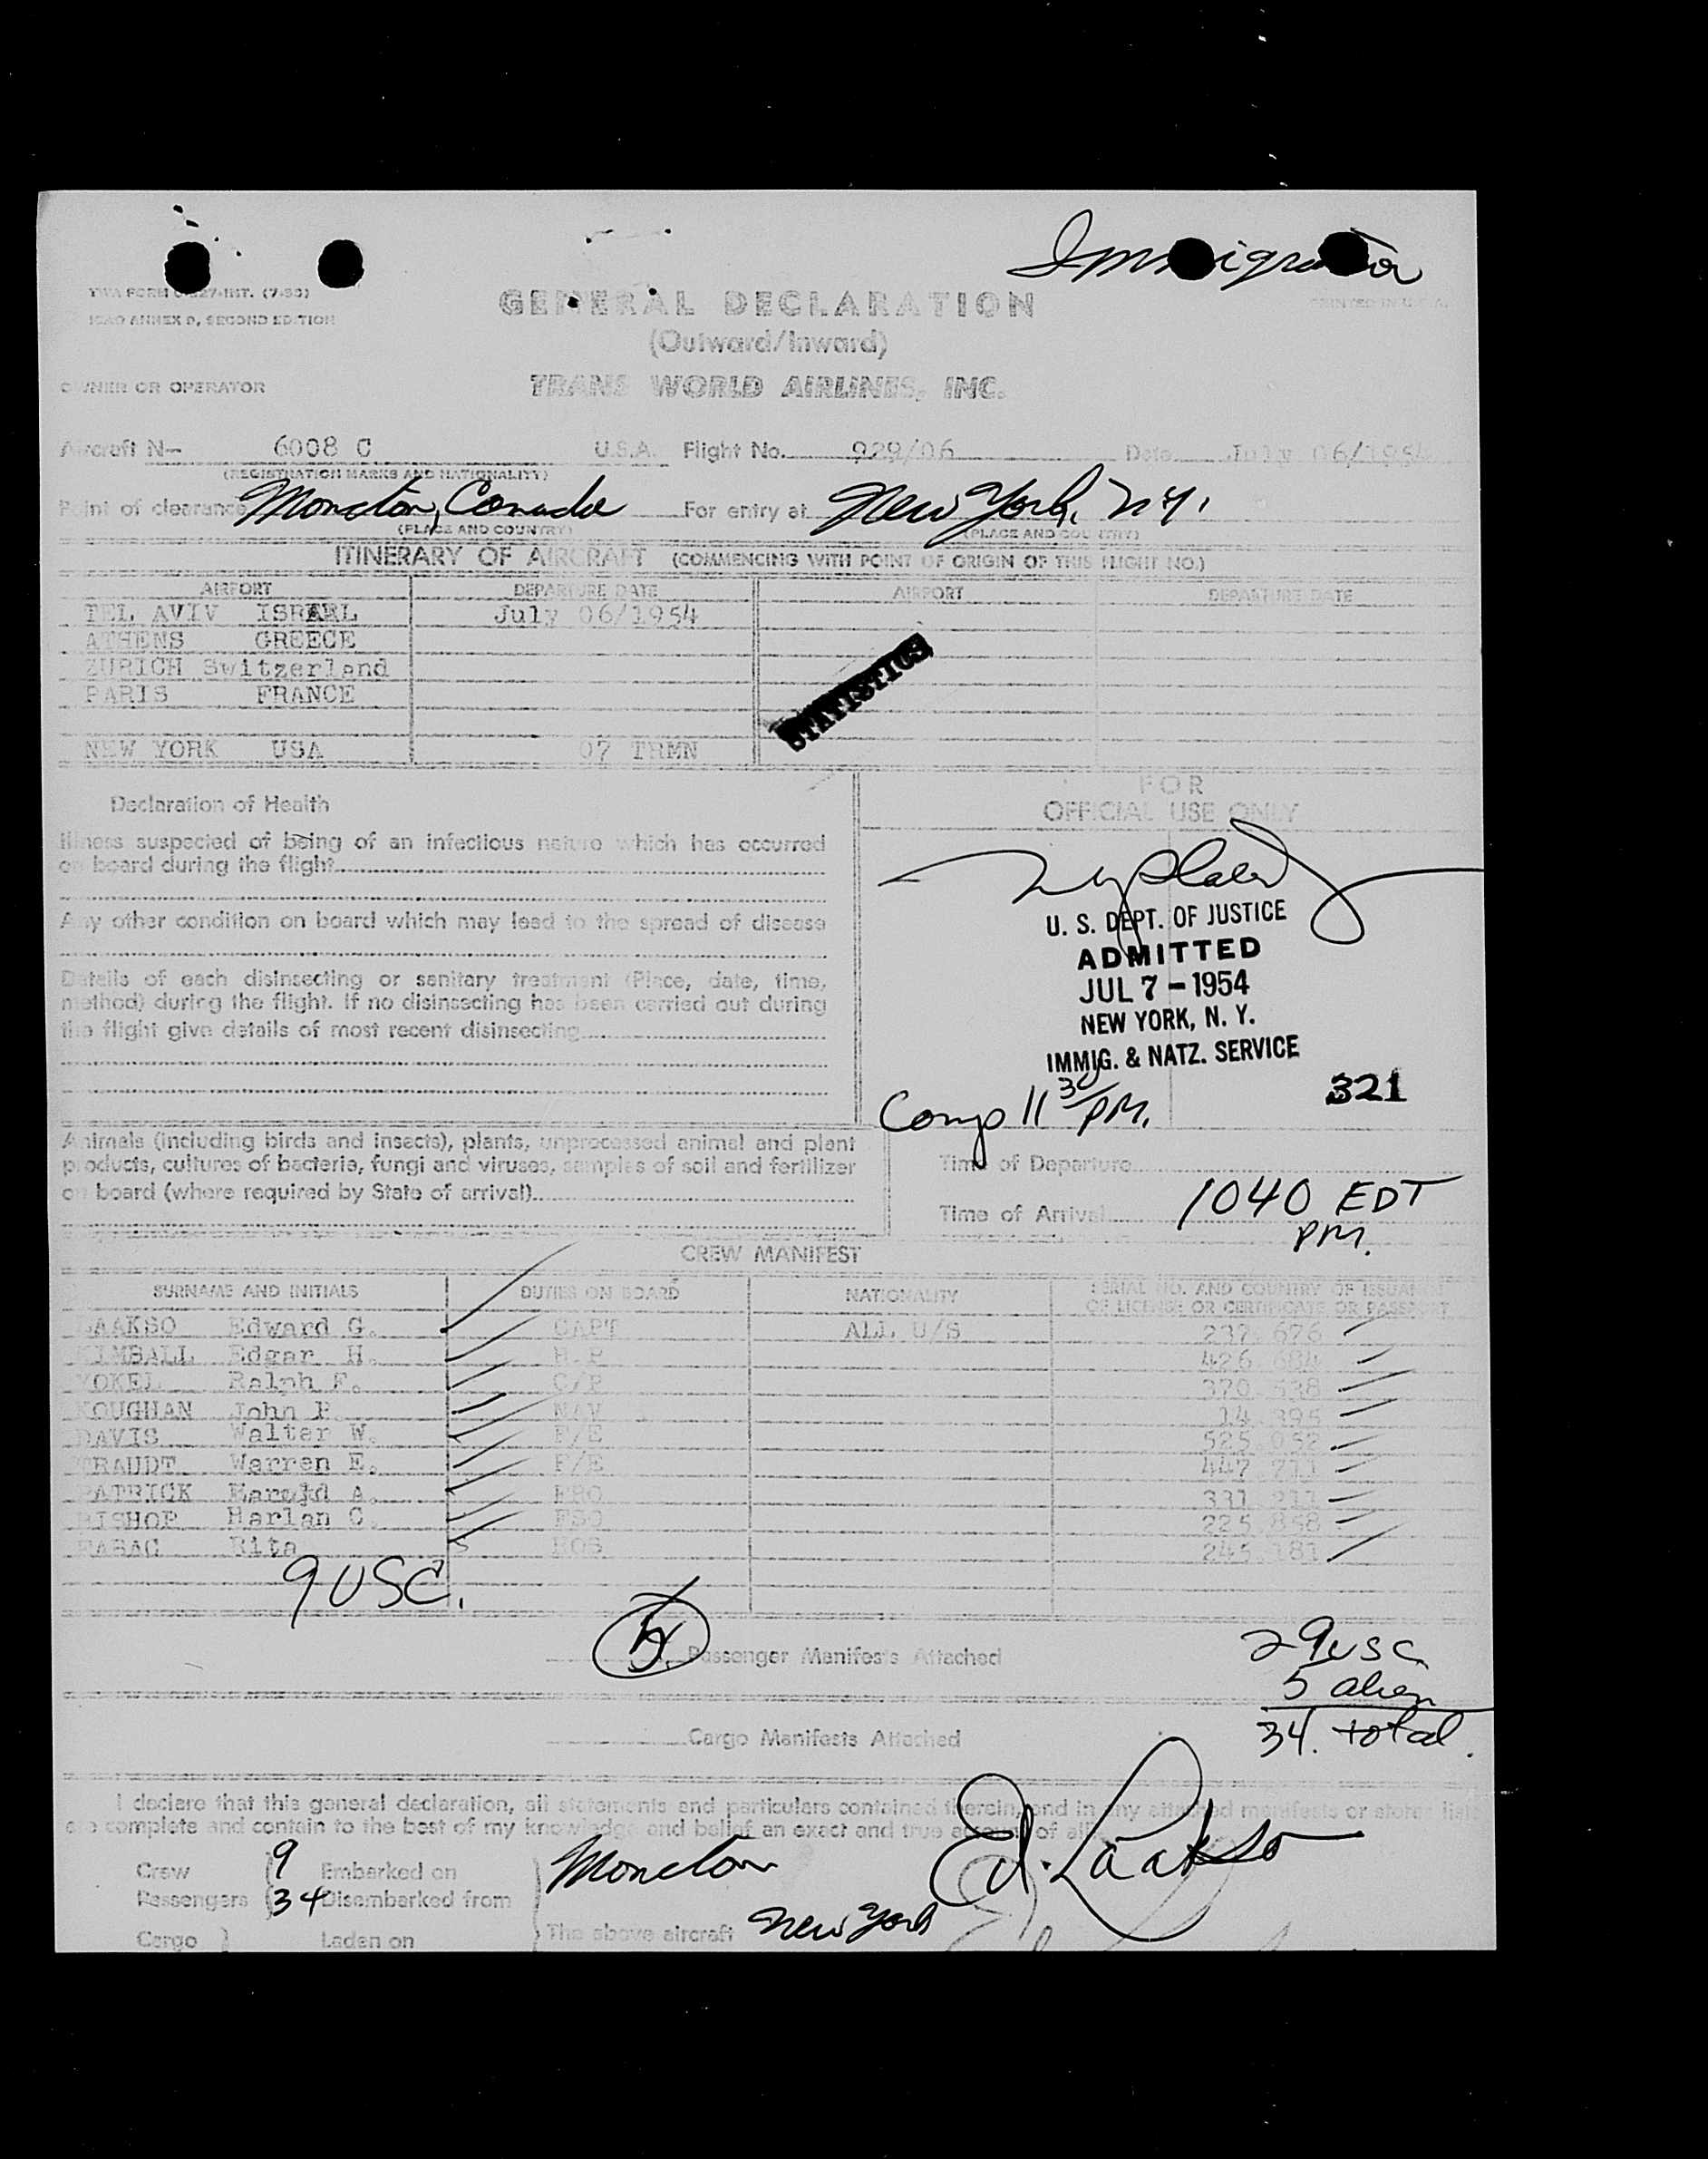 Immigration
TWA FORM INT. (7-53)
ICAO ANNEX 9, SECOND EDITION
PRINTED IN U.S.A.
GENERAL DECLARATION
(Outward/Inward)
OWNER OR OPERATOR TRANS WORLD AIRLINES, INC.
Aircraft N— 6008 C U.S.A. Flight No. 929/06 Date July 06/1954
(REGISTRATION MARKS AND NATIONALITY)
Point of clearance Moncton, Canada For entry at New York, N.Y.
(PLACE AND COUNTRY) (PLACE AND COUNTRY)
ITINERARY OF AIRCRAFT (COMMENCING WITH POINT OF ORIGIN OF THIS FLIGHT NO.)
AIRPORT DEPARTURE DATE AIRPORT DEPARTURE DATE
TEL AVIV ISRAEL July 06/1954
ATHENS GREECE
ZURICH Switzerland
PARIS FRANCE
STATISTICS
NEW YORK USA 07 TRMN
Declaration of Health
Illness suspected of being of an infectious nature which has occurred
on board during the flight
Any other condition on board which may lead to the spread of disease
Details of each disinsecting or sanitary treatment (Place, date, time,
method) during the flight. If no disinsecting has been carried out during
the flight give details of most recent disinsecting
FOR
OFFICIAL USE ONLY
U. S. DEPT. OF JUSTICE
ADMITTED
JUL 7 – 1954
NEW YORK, N. Y.
IMMIG. & NATZ. SERVICE
321
Comp 11 30/PM.
Animals (including birds and insects), plants, unprocessed animal and plant
products, cultures of bacteria, fungi and viruses, samples of soil and fertilizer
on board (where required by State of arrival)
Time of Departure
Time of Arrival 1040 EDT
PM.
CREW MANIFEST
SURNAME AND INITIALS DUTIES ON BOARD NATIONALITY SERIAL NO. AND COUNTRY OF ISSUANCE
OF LICENSE OR CERTIFICATE OR PASSPORT
LAAKSO Edward G. CAPT ALL U/S 237 676
KIMBALL Edgar H. 426 684
Ralph F. C/P 370
John NAV 14 395
DAVIS Walter W. F/E 525 052
Warren E. F/E 447 711
PATRICK Harold A. 331 211
BISHOP Harlan C. 225 858
Rita 245 181
9 USC.
5 Passenger Manifests Attached
29 USC
5 alien
34. total.
Cargo Manifests Attached
I declare that this general declaration, all statements and particulars contained therein, and in any attached manifests or stores lists
are complete and contain to the best of my knowledge and belief an exact and true account of all
Crew 9 Embarked on Moncton Ed. Laakso
Passengers 34 Disembarked from
Cargo Laden on The above aircraft New York